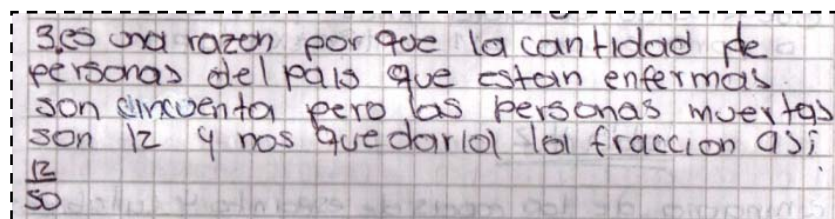 3.es una razon por que la cantidad de
personas del pais que estan enfermas
son cincuenta pero las personas muertas
son 12 y nos quedaria la fraccion asi
12
50